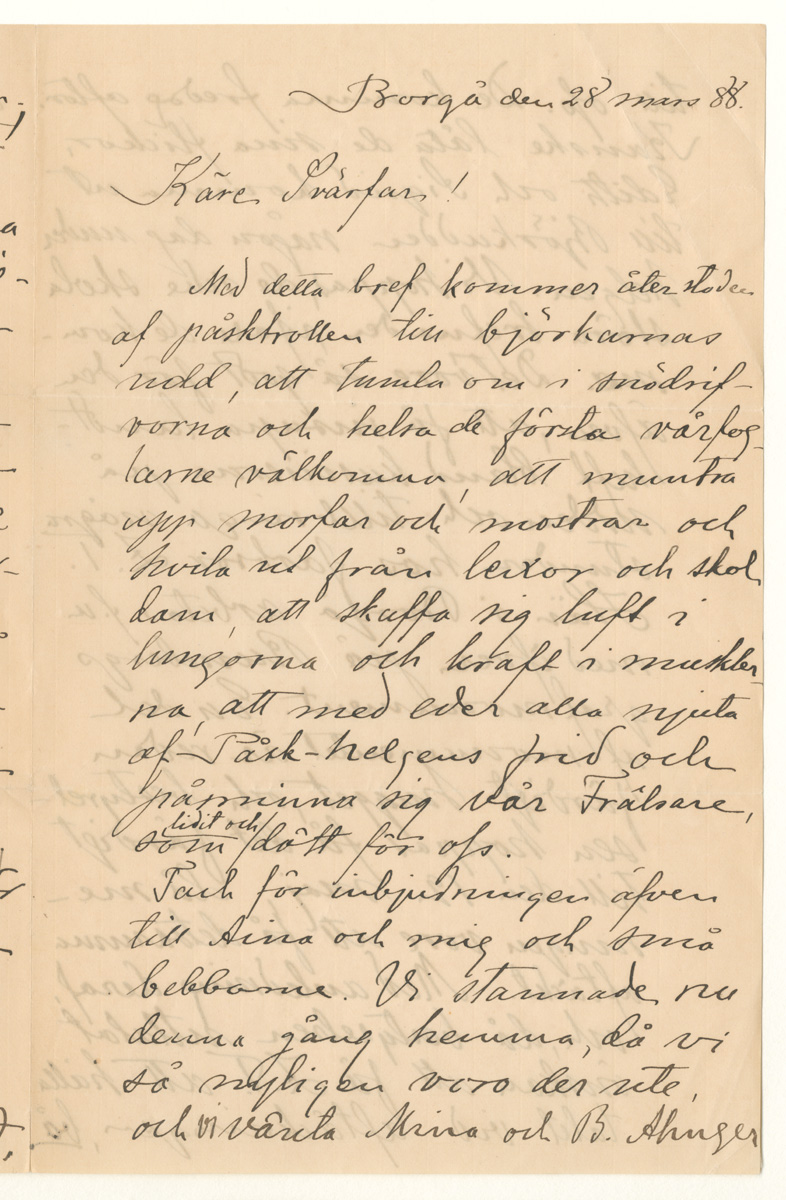 Borgå den 28 mars 88.
Käre Svärfar!
Med detta bref kommer återstoden
af påsktrollen till björkarnas
udd, att tumla om i snödrif-
vorna och helsa de första vårfog-
larne välkomna, att muntra
upp morfar och mostrar och
hvila ut från lexor och skol
dam, att skaffa sig luft i
lungorna och kraft i muskler-
na, att med eder alla njuta
af Påsk-helgens frid och
påminna sig vår Frälsare,
som lidit och dött för oss.
Tack för inbjudningen äfven
till Aina och mig och små
bebbarne. Vi stannade nu
denna gång hemma, då vi
så nyligen voro der ute,
och vi vänta Mina och B.